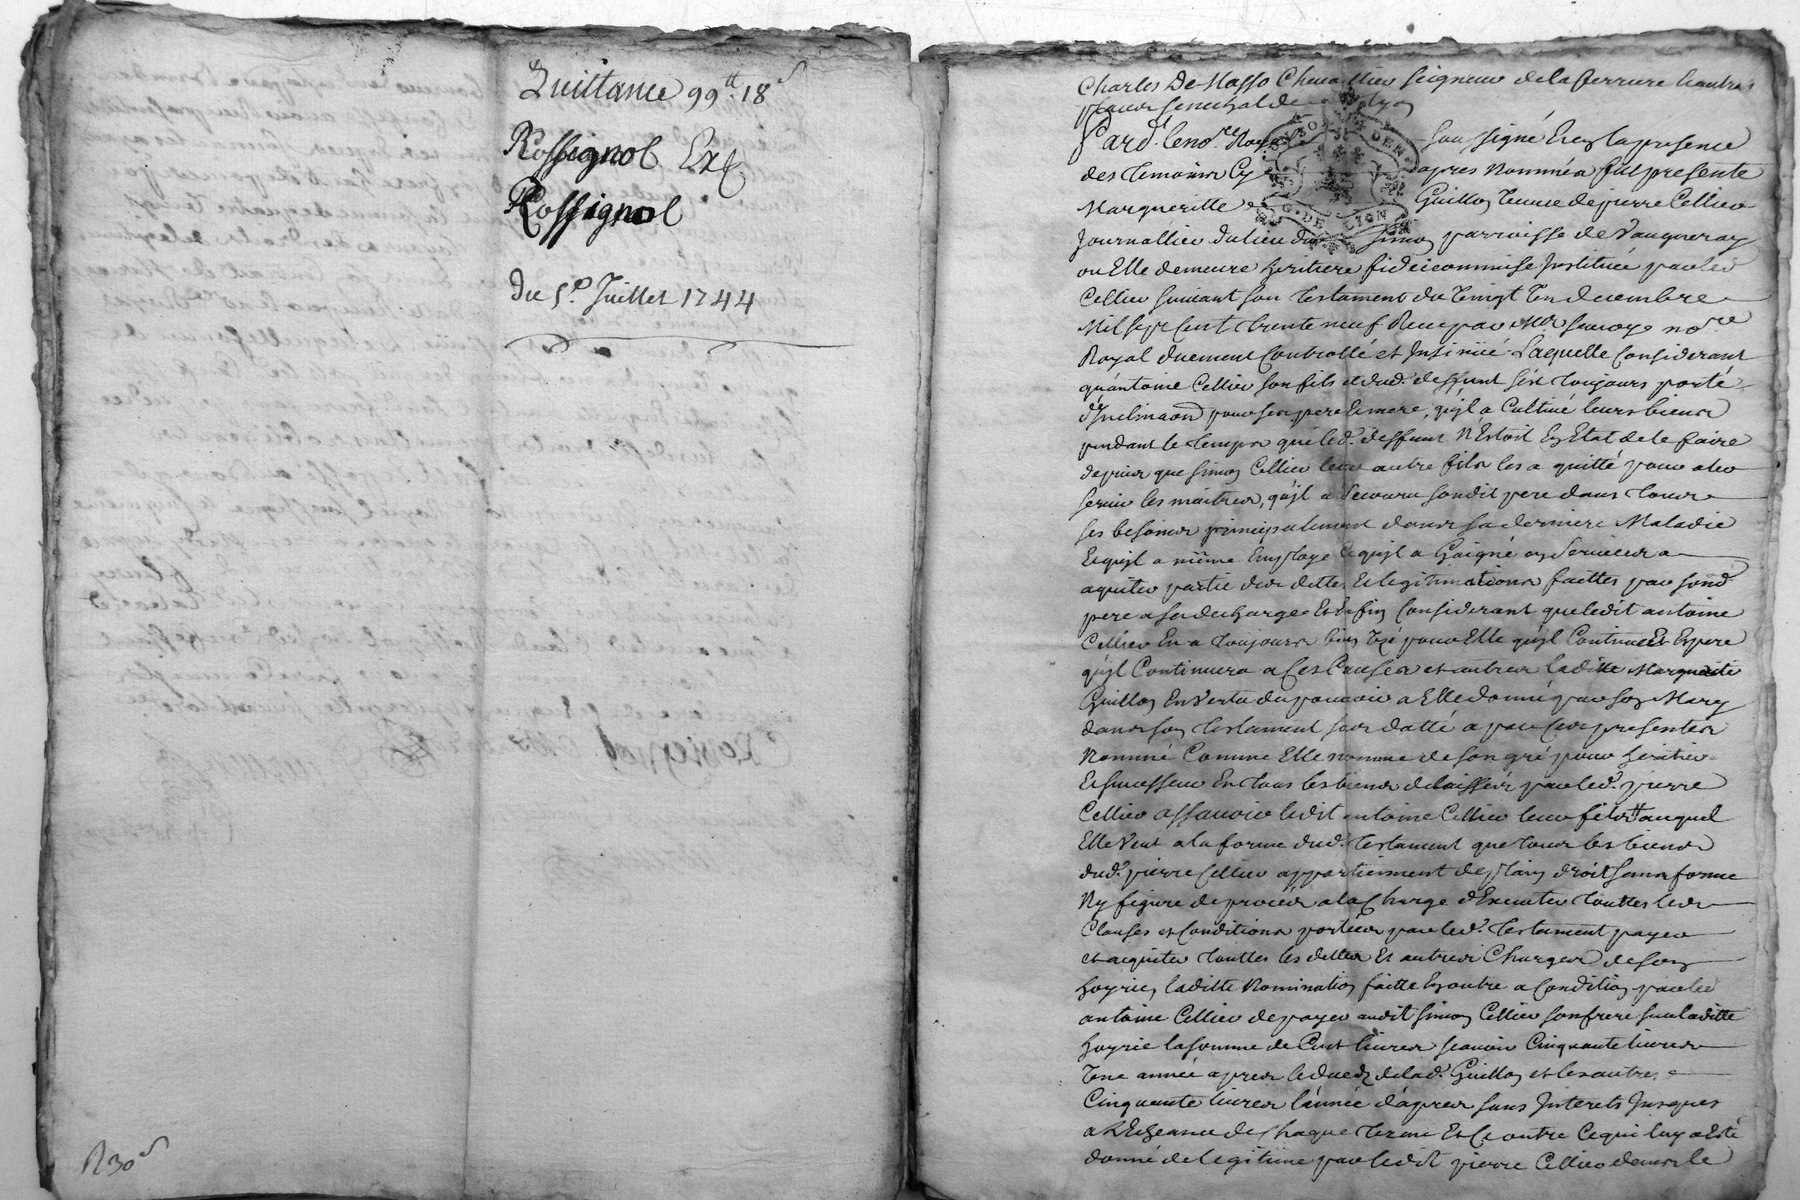 Quittance 99ᵗᵗ 18ˢ
Rossignol Exᵉ
Rossignol
du 5ᵉ Juillet 1744
R 30ˢ
Charles De Masso Chevallier seigneur de la ferriere & autres
places senechal de Lyon
Pardᵗ. le noʳᵉ Royal sousigné En la presence
des temoins Cy apres Nommés fut presente
Margueritte Guillon veuve de pierre Cellier
Journallier du lieu du simon parroisse de Vaugneray
ou Elle demeure heritiere fideicommise Instituée par led
Cellier suivant son testament du vingt un decembre
Mil sept Cent trente neuf Receu par Mᵉ noʳᵉ
Royal duement Controllé et Insinüé Laquelle Considerant
qu'antoine Cellier son fils et dud. deffunt s'est toujours porté
d'Inclinaon pour ses pere & mere, qu'jl a Cultivé leurs biens
pendant le temps que led. deffunt N'Estoit En Etat de le faire
depuis que simon Cellier leur autre fils les a quitté pour aler
servir les maitres, qu'jl a secouru sondit pere dans tous
ses besoins principalement dans sa derniere Maladie
Et qu'jl a même Employé ce qu'jl a Gaigné en service a
aquiter partie des dettes & legitimations faittes par sond
pere a sa decharge Et Enfin Considerant que ledit antoine
Cellier En a toujours bien usé pour Elle qu'jl Continue Et Espere
qu'jl Continuera a Ces Causes et autres laditte Margueritte
Guillon En Vertu du pouvoir a Elle donné par son Mary
dans son testament sus datté a par Ces presentes
Nommé Comme Elle nomme de son gré pour heritier
Et successeur En tous les biens delaissés par led. pierre
Cellier assavoir ledit antoine Cellier leur fils auquel
Elle Veut a la forme dud. testament que tous les biens
dud. pierre Cellier appartiennent de plain droit sans forme
Ny figure de procès a la Charge d'Executer touttes les
Clauses et Conditions portées par led. testament payer
et acquiter touttes les dettes Et autres Charges de son
hoyrie, laditte Nomination faitte En outre a Condition par led
antoine Cellier de payer audit simon Cellier son frere sur laditte
hoyrie la somme de Cent livres scavoir Cinquante livres
Une année apres le deced de lad. Guillon et les autres
Cinquante livres l'année d'apres sans Interets Jusques
a L'Echeance de Chaque terme Et Ce outre Ce qui luy a Eté
donné de legitime par ledit pierre Cellier dans le